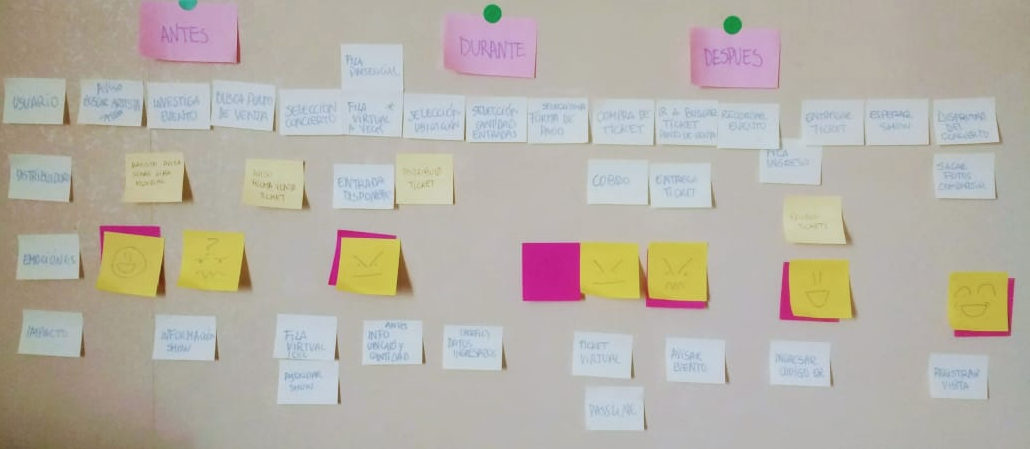 ANTES
DURANTE
DESPUES
FILA
PRESENCIAL
USUARIO
AVISO
BUSCAR ARTISTA
INVESTIGA
EVENTO
BUSCA PUNTO
DE VENTA
SELECCIÓN
CONCIERTO
FILA
VIRTUAL
SELECCIÓN
UBICACIÓN
SELECCIÓN
CANTIDAD
ENTRADAS
SELECCIONA
FORMA DE
PAGO
COMPRA DE
TICKET
IR A BUSCAR
TICKET
PUNTO DE VENTA
RECORDAR
EVENTO
ENTREGAR
TICKET
ESPERAR
SHOW
DISFRUTAR
DEL
CONCIERTO
FILA
INGRESO
DISTRIBUIDOR
ENTRADA
DISPONIBLE
TICKET
COBRO
ENTREGA
TICKET
SACAR
FOTOS
COMPARTIR
TICKETS
EMOCIONES
?
IMPACTO
INFORMACIÓN
SHOW
FILA
VIRTUAL
AGENDAR
SHOW
ANTES
INFO
UBICACIÓN Y
CANTIDAD
DATOS
INGRESADOS
TICKET
VIRTUAL
PASSLINE
AVISAR
EVENTO
INGRESAR
CÓDIGO QR
REGISTRAR
VISITA